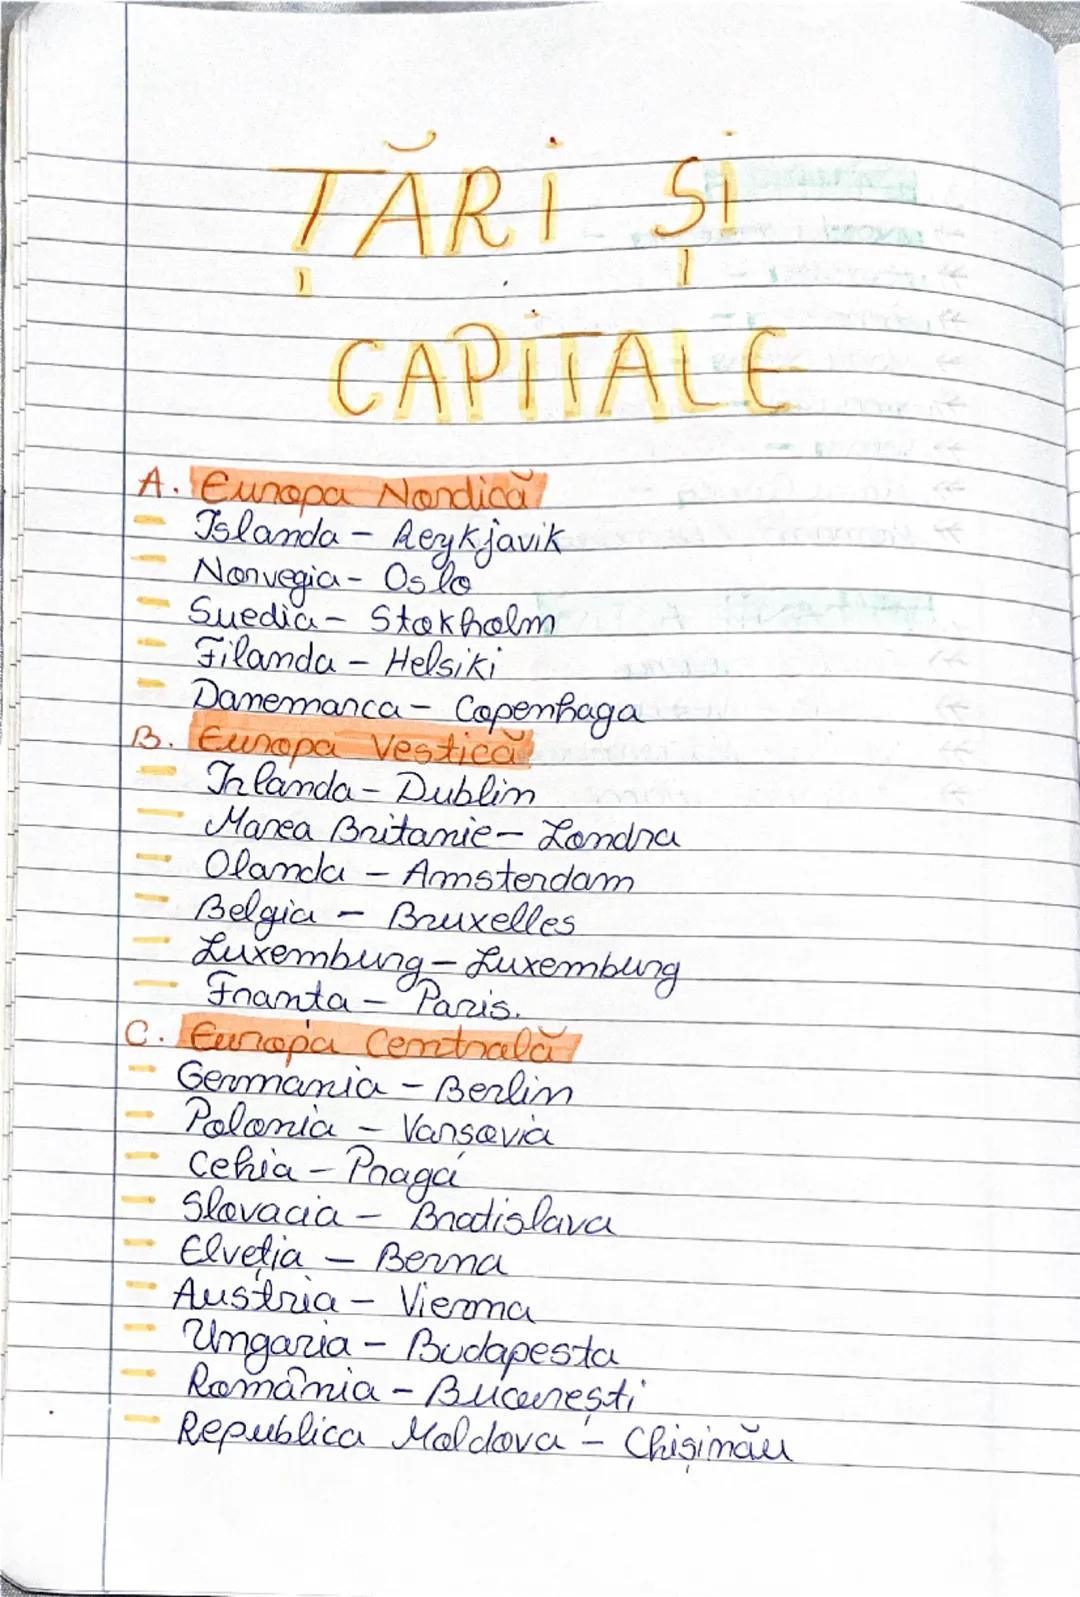 ȚĂRI ȘI
CAPITALE
A. Europa Nordică
Islanda - Reykjavik
Norvegia - Oslo
Suedia - Stokholm
Filanda - Helsiki
Danemarca - Copenhaga
B. Europa Vestică
Irlanda - Dublin
Marea Britanie - Londra
Olanda - Amsterdam
Belgia - Bruxelles
Luxemburg - Luxemburg
Franta - Paris.
C. Europa Centrală
Germania - Berlin
Polonia - Varsovia
Cehia - Praga
Slovacia - Bratislava
Elveția - Berna
Austria - Viena
Ungaria - Budapesta
România - București
Republica Moldova - Chișinău